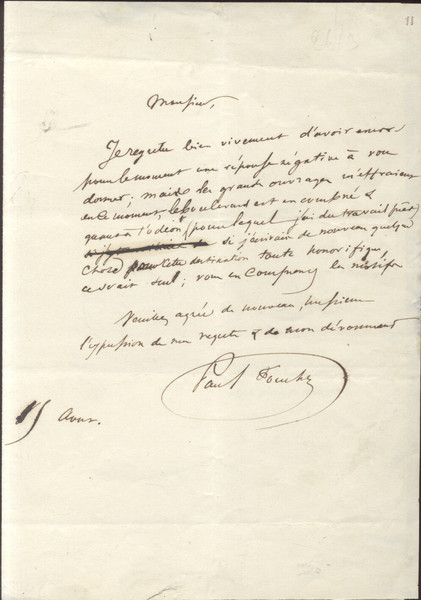 11
Monsieur,
Je regrette bien vivement d'avoir encore
pour le moment une réponse négative à vous
donner; mais les grands ouvrages m'effraient
en ce moment, le boulevard est en &
quant à l'odéon (pour lequel j'ai du travail prêt)
si j'écrivais de nouveau quelque
chose pour cette destination toute honorifique,
ce serait seul; vous en comprenez les motifs.
Veuillez agréer de nouveau, monsieur
l'expression de mes regrets & de mon dévouement
Paul Foucher
15 Avril.